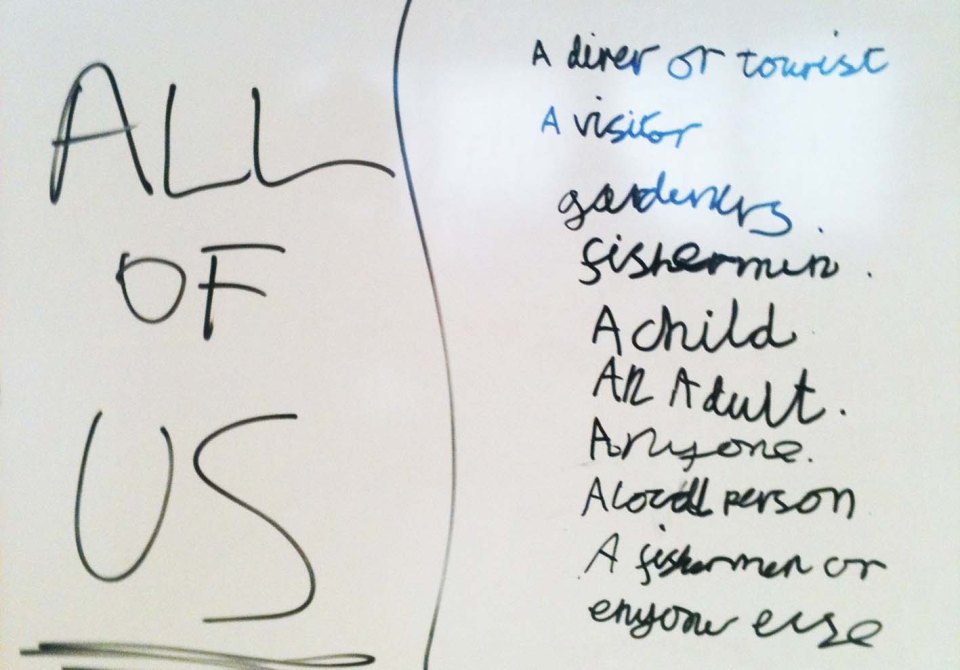 ALL
OF
US
A diner or tourist
A visitor
gardeners.
fishermen.
A child
An Adult.
Anyone.
A local person
A fishermen or
enyone else